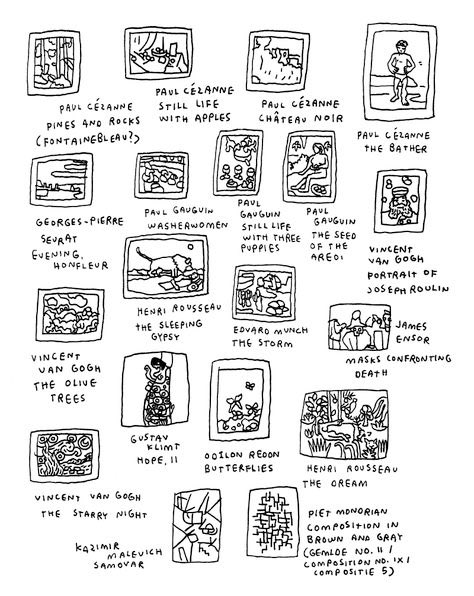 PAUL CÉZANNE
PINES AND ROCKS
(FONTAINEBLEAU?)
PAUL CÉZANNE
STILL LIFE
WITH APPLES
PAUL CÉZANNE
CHÂTEAU NOIR
PAUL CÉZANNE
THE BATHER
GEORGES-PIERRE
SEURAT
EVENING,
HONFLEUR
PAUL GAUGUIN
WASHERWOMEN
PAUL
GAUGUIN
STILL LIFE
WITH THREE
PUPPIES
PAUL
GAUGUIN
THE SEED
OF THE
AREOI
VINCENT
VAN GOGH
PORTRAIT OF
JOSEPH ROULIN
HENRI ROUSSEAU
THE SLEEPING
GYPSY
EDVARD MUNCH
THE STORM
JAMES
ENSOR
MASKS CONFRONTING
DEATH
VINCENT
VAN GOGH
THE OLIVE
TREES
GUSTAV
KLIMT
HOPE, II
ODILON REDON
BUTTERFLIES
HENRI ROUSSEAU
THE DREAM
VINCENT VAN GOGH
THE STARRY NIGHT
KAZIMIR
MALEVICH
SAMOVAR
PIET MONDRIAN
COMPOSITION IN
BROWN AND GRAY
(GEMLDE NO. II /
COMPOSITION NO. IX /
COMPOSITIE 5)